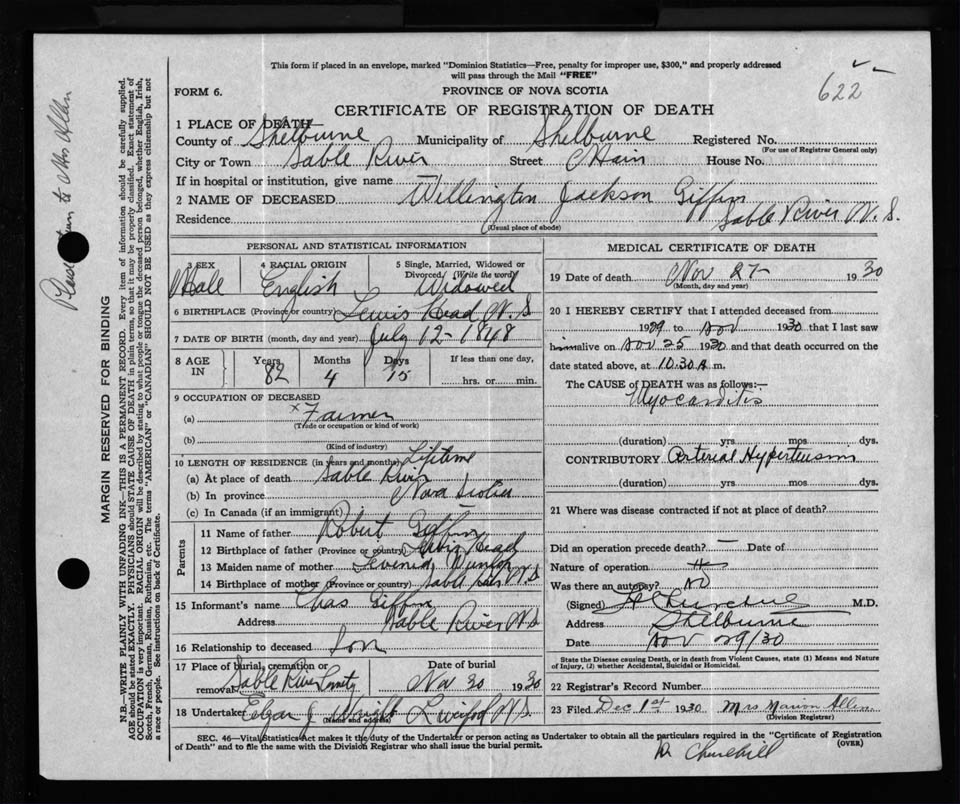 This form if placed in an envelope, marked "Dominion Statistics—Free, penalty for improper use, $300," and properly addressed
will pass through the Mail "FREE"
622
FORM 6.
PROVINCE OF NOVA SCOTIA
CERTIFICATE OF REGISTRATION OF DEATH
1 PLACE OF DEATH
County of Shelburne Municipality of Shelburne Registered No.
(For use of Registrar General only)
City or Town Sable River Street Main House No.
If in hospital or institution, give name
2 NAME OF DECEASED Willington Jackson Giffin
Residence Sable River N.S.
(Usual place of abode)
PERSONAL AND STATISTICAL INFORMATION
3 SEX 4 RACIAL ORIGIN 5 Single, Married, Widowed or
Divorced (Write the word)
Male English Widowed
6 BIRTHPLACE (Province or country) Lewis Head N.S
7 DATE OF BIRTH (month, day and year) July 12-1848
8 AGE IN Years Months Days If less than one day,
82 4 15 hrs. or min.
9 OCCUPATION OF DECEASED
(a) x Farmer
(Trade or occupation or kind of work)
(b)
(Kind of industry)
10 LENGTH OF RESIDENCE (in years and months) Lifetime
(a) At place of death Sable River
(b) In province Nova Scotia
(c) In Canada (if an immigrant)
Parents
11 Name of father Robert Giffin
12 Birthplace of father (Province or country) Lewis Head
13 Maiden name of mother Dunlop
14 Birthplace of mother (Province or country) Sable River N.S
15 Informant's name Chas Giffin
Address Sable River N.S
16 Relationship to deceased Son
17 Place of burial, cremation or Date of burial
removal Sable River Nov 30 1930
18 Undertaker Edgar J Wright N.S.
(Name and address)
MEDICAL CERTIFICATE OF DEATH
19 Date of death Nov 27- 1930
(Month, day and year)
20 I HEREBY CERTIFY that I attended deceased from
1929 to Nov 1930 that I last saw
him alive on Nov 25 1930 and that death occurred on the
date stated above, at 10.30 A m.
The CAUSE of DEATH was as follows:—
Myocarditis
(duration) yrs. mos. dys.
CONTRIBUTORY Arterial Hypertension
(duration) yrs. mos. dys.
21 Where was disease contracted if not at place of death?
Did an operation precede death? — Date of
Nature of operation
Was there an autopsy? No
(Signed) Churchill M.D.
Address Shelburne
Date Nov 29/30
State the Disease causing Death, or in death from Violent Causes, state (1) Means and Nature
of Injury, (2) whether Accidental, Suicidal or Homicidal.
22 Registrar's Record Number
23 Filed Dec 1st 1930 Mrs Marion Allen
(Division Registrar)
SEC. 46—Vital Statistics Act makes it the duty of the Undertaker or person acting as Undertaker to obtain all the particulars required in the "Certificate of Registration
of Death" and to file the same with the Division Registrar who shall issue the burial permit. (OVER)
Dr Churchill
Please return to Mrs Allen
MARGIN RESERVED FOR BINDING
N.B.—WRITE PLAINLY WITH UNFADING INK—THIS IS A PERMANENT RECORD. Every item of information should be carefully supplied.
AGE should be stated EXACTLY. PHYSICIANS should STATE CAUSE OF DEATH in plain terms, so that it may be properly classified. Exact statement of
OCCUPATION is very important. RACIAL ORIGIN will be described by stating to what people or tongue the deceased person belonged, whether English, Irish,
Scotch, French, German, Russian, Ruthenian, etc. The terms "AMERICAN" or "CANADIAN" SHOULD NOT BE USED as they express citizenship but not
a race or people. See instructions on back of Certificate.